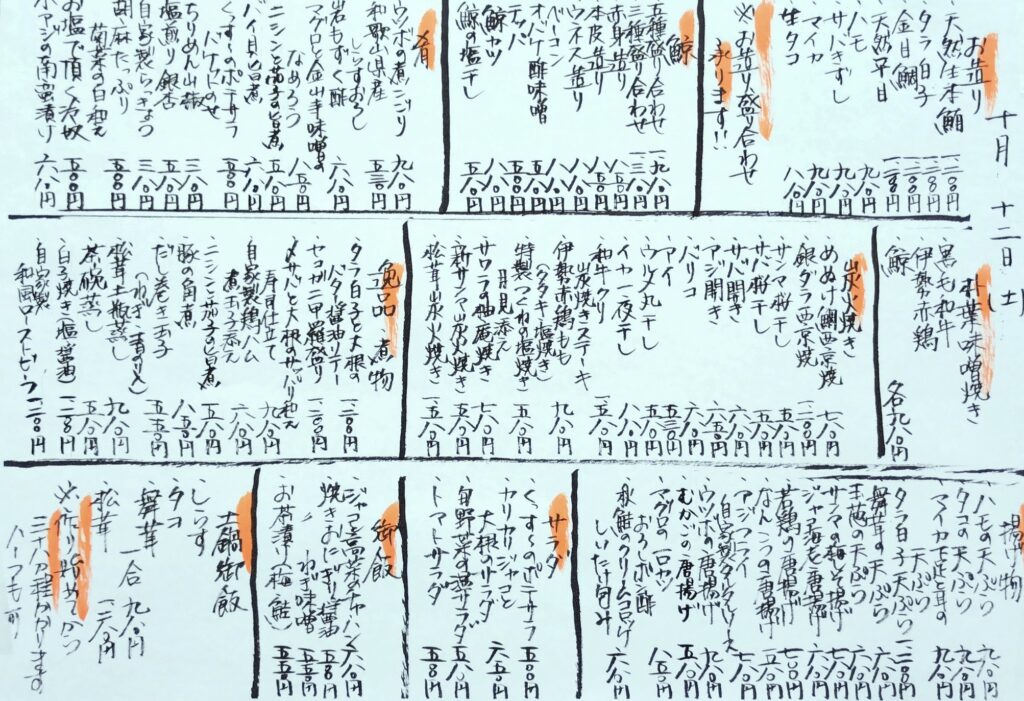 十月 十二日 土
お造り
天然生本鮪 一、二八〇円
タラ白子 一、二八〇円
金目鯛 一、二八〇円
天然平目 一、二八〇円
ハモ 九八〇円
サバきずし 九八〇円
マイカ 九八〇円
生タコ 八八〇円
※お造り盛り合わせ
承ります!!
鯨
五種盛り合わせ
三種盛り合わせ
赤身造り
本皮造り
ウネス造り
ベーコン
オバケ酢味噌
テッパ
鯨カツ
鯨の塩干し
肴
ウツボの煮こごり 九八〇円
和歌山県産
しらすおろし 五三〇円
岩もずく酢 六八〇円
マグロと金山寺味噌の
なめろう 八五〇円
ニシンと茄子の旨煮 五八〇円
バイ貝旨煮 六八〇円
くっすぅのポテサラ
バケットのせ 五八〇円
ちりめん山椒 三八〇円
塩煎り銀杏 五八〇円
自家製らっきょう 三八〇円
胡麻たっぷり
菊菜の白和え 五八〇円
お塩で頂く冷奴 五〇〇円
小アジの南蛮漬け 六八〇円
朴葉味噌焼き
黒毛和牛
伊勢赤鶏
鯨
各九八〇円
炭火焼き
めぬけ鯛西京焼 七八〇円
銀ダラ西京焼 一、二〇〇円
サンマ桜干し 五八〇円
サバ桜干し 五八〇円
サバ開き 六八〇円
アジ開き 六五〇円
バリコ 六八〇円
アイ 五三〇円
ウルメ丸干し 五八〇円
イカ一夜干し 八八〇円
和牛クリ
炭焼きステーキ 一、五八〇円
伊勢赤鶏もも
(タタキ・塩焼き) 九八〇円
特製つくねの塩焼き
月見添え 五八〇円
サワラの柚庵焼き 七八〇円
新サンマ炭火焼き 五五〇円
松茸炭火焼き 一、五八〇円
逸品 煮物
タラ白子と大根の
バター醤油ソテー 一、二八〇円
セコガニ甲羅盛り 一、二〇〇円
〆サバと大根のサッパリ和え
寿司仕立て 九八〇円
自家製鶏ハム
煮玉子添え 六八〇円
ニシンと茄子の旨煮 五八〇円
豚の角煮 八五〇円
だし巻き玉子
(ねぎ・青のり入) 五五〇円
松茸土瓶蒸し 九八〇円
茶碗蒸し 五八〇円
白子焼き(塩・醤油) 一、二八〇円
自家製
和風ローストビーフ 一、二〇〇円
揚げ物
ハモの天ぷら 九八〇円
タコの天ぷら 九八〇円
マイカ下足と耳の
天ぷら 九八〇円
タラ白子天ぷら 一、二〇〇円
舞茸の天ぷら 六八〇円
玉葱の天ぷら 六八〇円
サンマの梅しそ揚げ 六八〇円
ジャコ海老唐揚げ 六八〇円
若鶏の唐揚げ 七〇〇円
なんこつの唐揚げ 五八〇円
アジフライ
自家製タルタルソース 七八〇円
ウツボの唐揚げ 九八〇円
むかごの唐揚げ 五八〇円
マグロの一口カツ
おろしポン酢 八五〇円
秋鮭のクリームコロッケ
しいたけ包み 六八〇円
サラダ
くっすぅのポテサラ 五〇〇円
カリカリジャコと
大根のサラダ 六五〇円
旬野菜の温サラダ 五八〇円
トマトサラダ 五〇〇円
御飯
ジャコと高菜のチャーハン 六八〇円
焼きおにぎり 醤油 五〇〇円
ねぎ味噌 五八〇円
お茶漬け(梅・鮭) 五五〇円
土鍋御飯
しらす
タコ
舞茸 一合 九八〇円
松茸 一、二八〇円
※作り始めてから
三十八分程かかりますの
ハーフも可